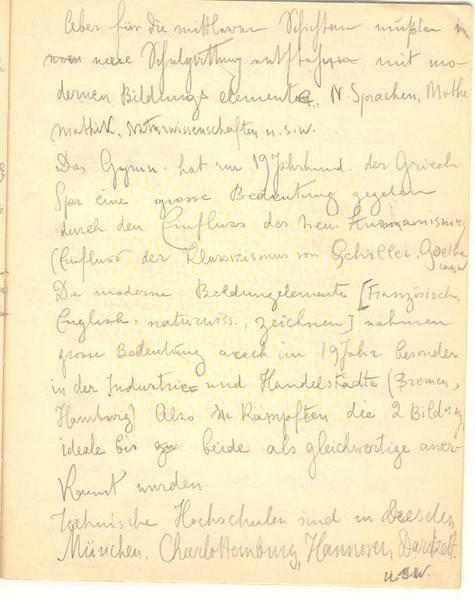 Aber für die mittleren Schichten mußten im
neue Schulgattung entstehen mit mo-
dernen Bildungs elemente, N. Sprachen, Mathe
mathik, Naturwissenschaften u.s.w.
Das Gymn. hat im 19 Jahrhund. der Griech
Spr eine grosse Bedeutung gegeben
durch den Einfluss des neu. Humanismus
(Einfluss der Klassizismus von Schiller, Goethe
usw
De moderne Bildungelemente [Französisch,
English. naturwiss., zeichnen] nahmen
grosse Bedeutung auch im 19 Jahr. besonder
in der Industrie und Handelstädte (Bremen,
Hamburg) Also die Kämpften die 2 Bildung
ideale bis beide als gleichwertige aner-
kannt wurden.
Technische Hochschulen sind in Dresden,
München, Charlottemburg, Hannover, Darmstt.
u.s.w.